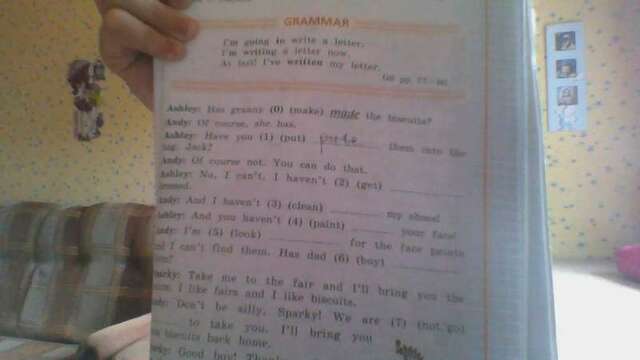 GRAMMAR
I'm going to write a letter.
I'm writing a letter now.
At last! I've written my letter.
Ashley: Has granny (0) (make) made the biscuits?
Andy: Of course, she has.
Ashley: Have you (1) (put) them into the
Jack?
Andy: Of course not. You can do that.
Ashley: No, I can't. I haven't (2) (get)
Andy: And I haven't (3) (clean) my shoes!
Ashley: And you haven't (4) (paint) your face!
Andy: I'm (5) (look) for the face paints
and I can't find them. Has dad (6) (buy)
Sparky: Take me to the fair and I'll bring you the
I like fairs and I like biscuits.
Andy: Don't be silly, Sparky! We are (7) (not/go)
to take you. I'll bring you
biscuits back home.
Sparky: Good boy!